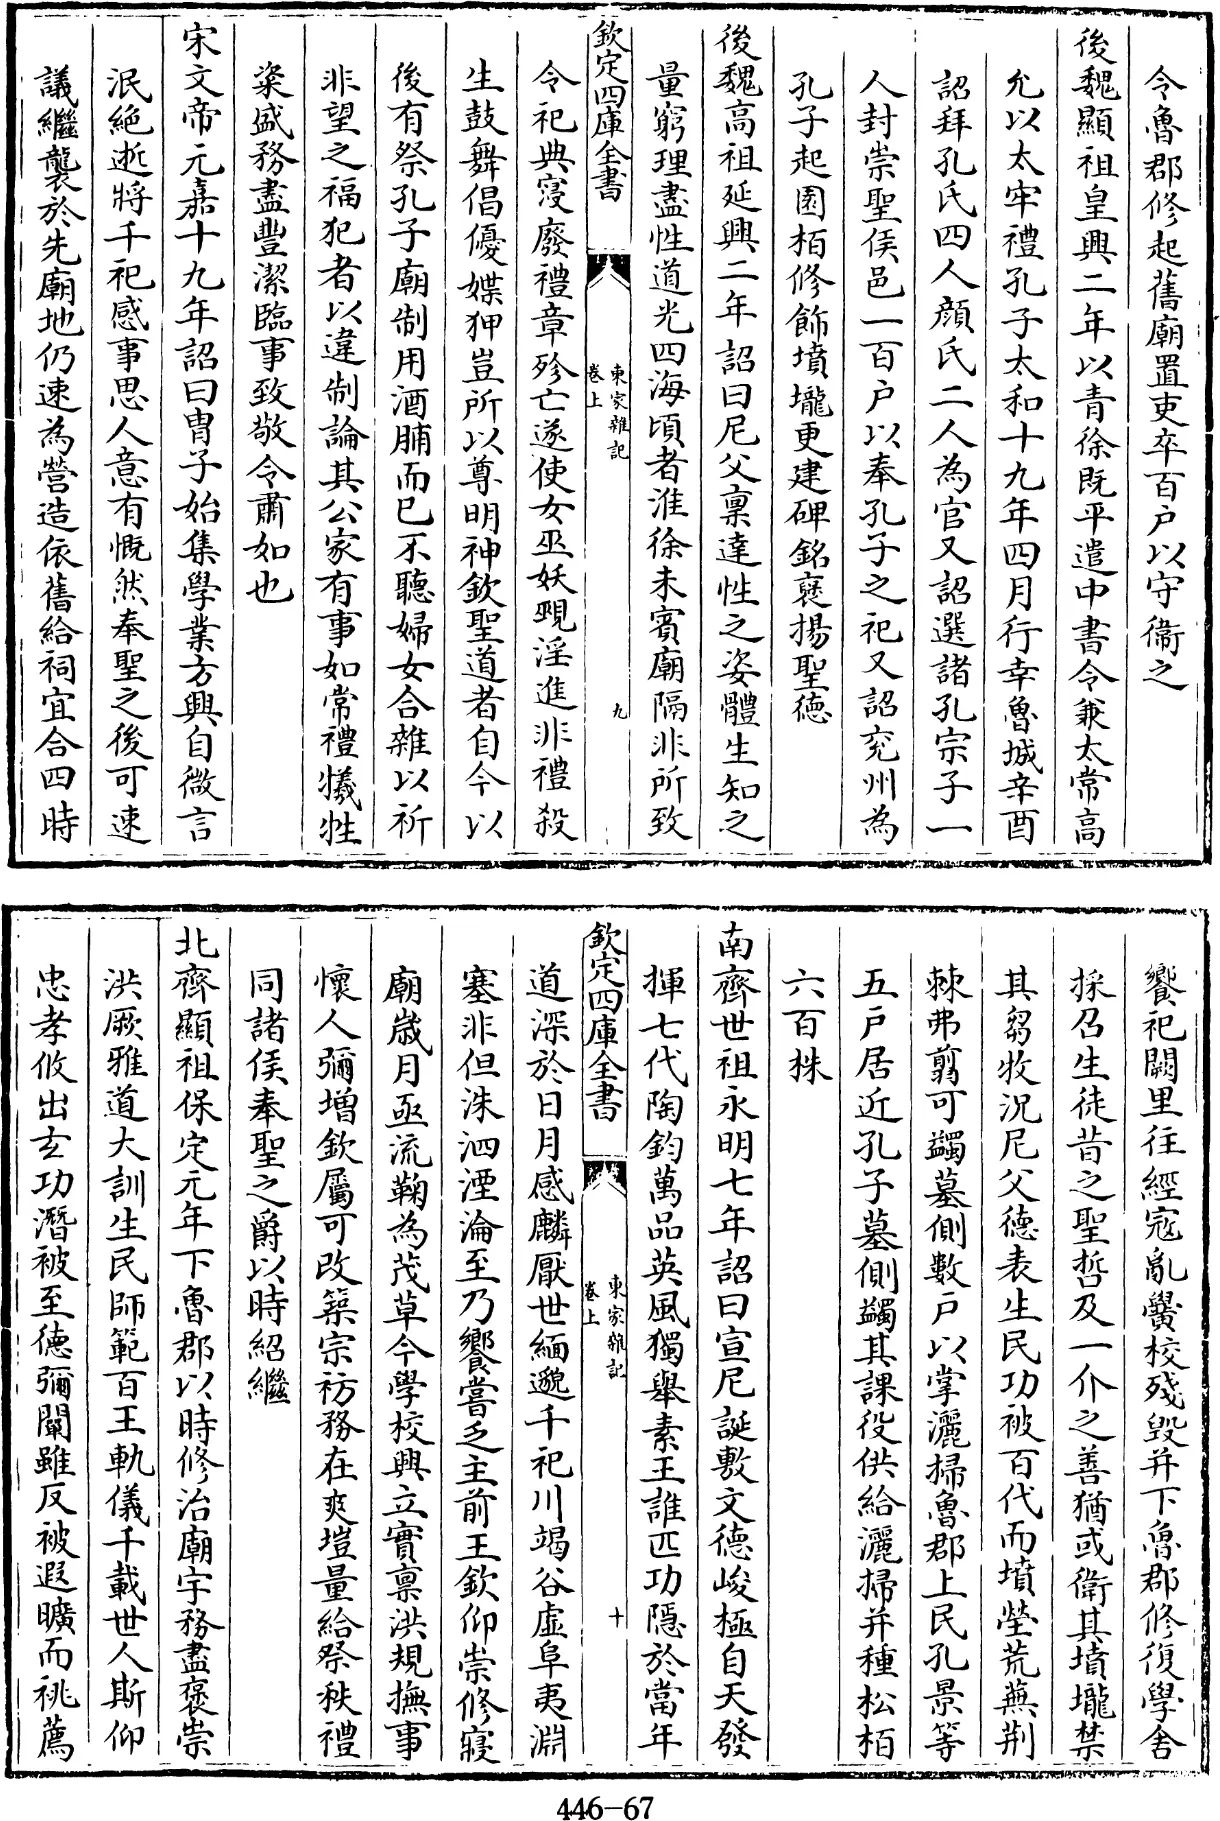 令魯郡修起舊廟置吏卒百戶以守衞之
後魏顯祖皇興二年以青徐既平遣中書令兼太常高
允以太牢禮孔子太和十九年四月行幸魯城辛酉
詔拜孔氏四人顔氏二人為官又詔選諸孔宗子一
人封崇聖侯邑一百户以奉孔子之祀又詔兖州為
孔子起園栢修飾墳壠更建碑銘褒揚聖徳
後魏高祖延興二年詔曰尼父稟達性之姿體生知之
量窮理盡性道光四海頃者淮徐未賓廟隔非所致
欽定四庫全書
東家雜記
卷上
九
令祀典寖廢禮章殄亡遂使女巫妖覡淫進非禮殺
生鼓舞倡優媟狎豈所以尊明神欽聖道者自今以
後有祭孔子廟制用酒脯而已不聽婦女合雜以祈
非望之福犯者以違制論其公家有事如常禮犧牲
粢盛務盡豐潔臨事致敬令肅如也
宋文帝元嘉十九年詔曰胄子始集學業方興自微言
泯絶逝將千祀感事思人意有慨然奉聖之後可速
議繼襲於先廟地仍速為營造依舊給祠宜合四時
饗祀闕里往經寇亂黌校殘毁并下魯郡修復學舍
採召生徒昔之聖哲及一介之善猶或衛其墳壠禁
其芻牧況尼父徳表生民功被百代而墳塋荒蕪荆
棘弗翦可蠲墓側數户以掌灑掃魯郡上民孔景等
五户居近孔子墓側蠲其課役供給灑掃并種松栢
六百株
南齊世祖永明七年詔曰宣尼誕敷文德峻極自天發
揮七代陶鈞萬品英風獨舉素王誰匹功隱於當年
欽定四庫全書
東家雜記
卷上
十
道深於日月感麟厭世緬邈千祀川竭谷虛阜夷淵
塞非但洙泗湮淪至乃饗嘗乏主前王欽仰崇修寢
廟歲月亟流鞠為茂草今學校興立實稟洪規撫事
懷人彌增欽屬可改築宗祊務在爽塏量給祭秩禮
同諸侯奉聖之爵以時紹繼
北齊顯祖保定元年下魯郡以時修治廟宇務盡褒崇
洪厥雅道大訓生民師範百王軌儀千載世人斯仰
忠孝攸出玄功潛被至德彌闡雖反被遐曠而祧薦
446-67